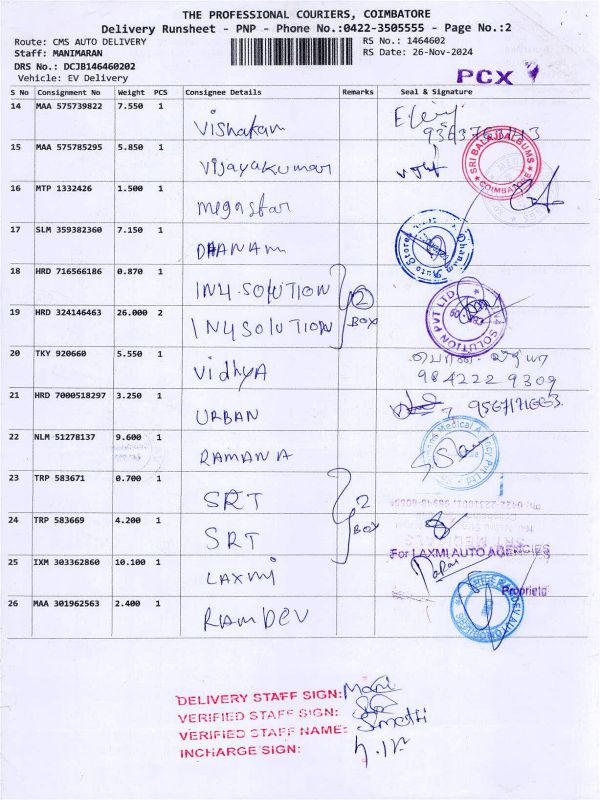 THE PROFESSIONAL COURIERS, COIMBATORE
Delivery Runsheet - PNP - Phone No.:0422-3505555 - Page No.:2
Route: CMS AUTO DELIVERY RS No.: 1464602
Staff: MANIMARAN RS Date: 26-Nov-2024
DRS No.: DCJB146460202
Vehicle: EV Delivery PCX
S No Consignment No Weight PCS Consignee Details Remarks Seal & Signature
14 MAA 575739822 7.550 1 Vishakam
15 MAA 575785295 5.850 1 Vijayakumar SRI BALAJI ALBUMS COIMBATORE
16 MTP 1332426 1.500 1 megastar
17 SLM 359382360 7.150 1 DHANAM Dhanam Auto Stores
18 HRD 716566186 0.870 1 IN4 SOLUTION 2 BOX
19 HRD 324146463 26.000 2 IN4 SOLUTION SOLUTION PVT LTD
20 TKY 920660 5.550 1 Vidhya
98422 2 9309
21 HRD 7000518297 3.250 1 URBAN
22 NLM 51278137 9.600 1 RAMANA
23 TRP 583671 0.700 1 SRT 2 BOX
24 TRP 583669 4.200 1 SRT
SRT MEDICALS
For LAXMI AUTO AGENCIES
25 IXM 303362860 10.100 1 LAXMI
Proprieto
26 MAA 301962563 2.400 1 RAMDEV
DELIVERY STAFF SIGN: Mani
VERIFIED STAFF SIGN:
VERIFIED STAFF NAME:
INCHARGE SIGN: